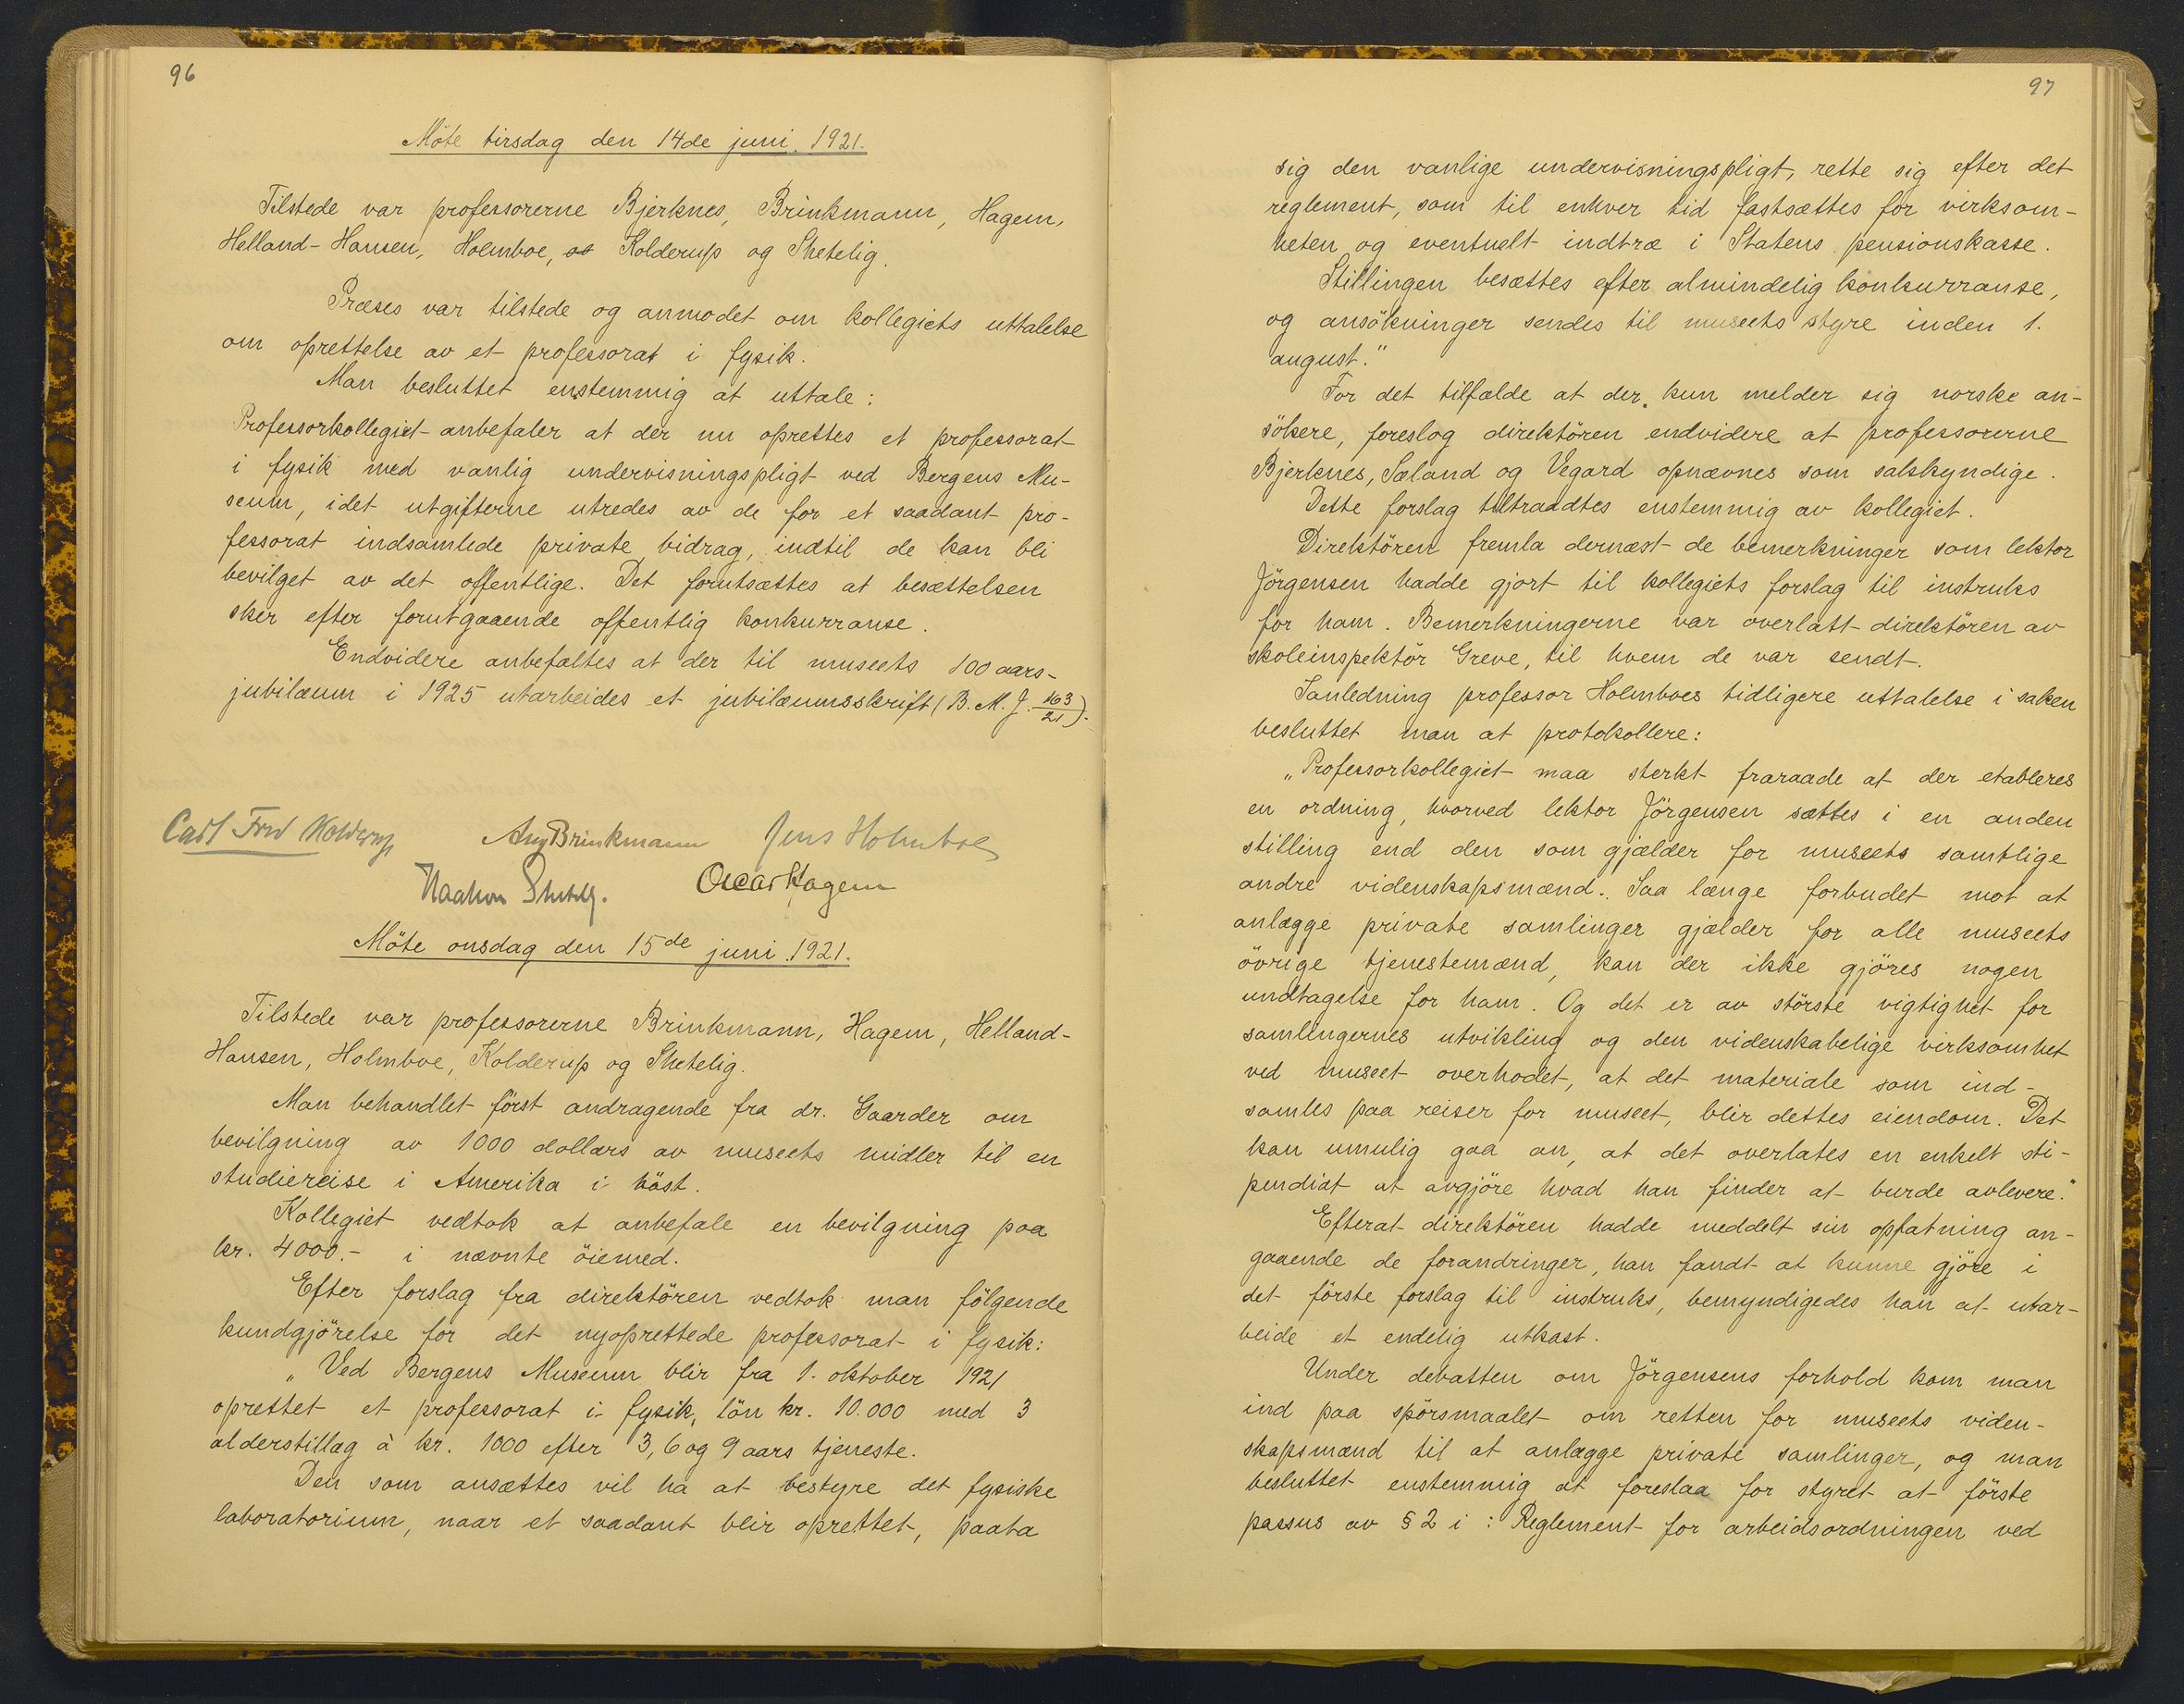 96
Möte tirsdag den 14de juni. 1921.
Tilstede var professorerne Bjerknes, Brinkmann, Hagem,
Helland-Hansen, Holmboe, Kolderup og Shetelig.
Præses var tilstede og anmodet om kollegiets uttalelse
om oprettelse av et professorat i fysik.
Man besluttet enstemmig at uttale:
Professorkollegiet anbefaler at der nu oprettes et professorat
i fysik med vanlig undervisningspligt ved Bergens Mu-
seum, idet utgifterne utredes av de for et saadant pro-
fessorat indsamlede private bidrag, indtil de kan bli
bevilget av det offentlige. Det forutsættes at besættelsen
sker efter forutgaaende offentlig konkurranse.
Endvidere anbefaltes at der til museets 100 aars-
jubilæum i 1925 utarbeides et jubilæumsskrift (B. M. J. 163/21).
Carl Fred Kolderup Aug Brinkmann Jens Holmboe
Haakon Shetelig. Oscar Hagem
Möte onsdag den 15de juni. 1921.
Tilstede var professorerne Brinkmann, Hagem, Helland-
Hansen, Holmboe, Kolderup og Shetelig.
Man behandlet först andragende fra dr. Gaarder om
bevilgning av 1000 dollars av museets midler til en
studiereise i Amerika i höst.
Kollegiet vedtok at anbefale en bevilgning paa
kr. 4000.- i nævnte öiemed.
Efter forslag fra direktören vedtok man fölgende
kundgjörelse for det nyoprettede professorat i fysik:
„Ved Bergens Museum blir fra 1. oktober 1921
oprettet et professorat i fysik, lön kr. 10.000 med 3
alderstillæg à kr. 1000 efter 3, 6 og 9 aars tjeneste.
Den som ansættes vil ha at bestyre det fysiske
laboratorium, naar et saadant blir oprettet, paata
97
sig den vanlige undervisningspligt, rette sig efter det
reglement, som til enhver tid fastsættes for virksom-
heten og eventuelt indtræ i Statens pensionskasse.
Stillingen besættes efter almindelig konkurranse,
og ansökninger sendes til museets styre inden 1.
august."
For det tilfælde at der kun melder sig norske an-
sökere, foreslog direktören endvidere at professorerne
Bjerknes, Sæland og Vegard opnævnes som sakkyndige.
Dette forslag tiltraadtes enstemmig av kollegiet.
Direktören fremla dernæst de bemerkninger som lektor
Jörgensen hadde gjort til kollegiets forslag til instruks
for ham. Bemerkningerne var overlatt direktören av
skoleinspektör Greve, til hvem de var sendt.
I anledning professor Holmboes tidligere uttalelse i saken
besluttet man at protokollere:
„Professorkollegiet maa sterkt fraraade at der etableres
en ordning, hvorved lektor Jörgensen sættes i en anden
stilling end den som gjælder for museets samtlige
andre videnskapsmænd. Saa længe forbudet mot at
anlægge private samlinger gjælder for alle museets
övrige tjenestemænd, kan der ikke gjöres nogen
undtagelse for ham. Og det er av störste vigtighet for
samlingernes utvikling og den videnskabelige virksomhet
ved museet overhodet, at det materiale som ind-
samles paa reiser for museet, blir dettes eiendom. Det
kan umulig gaa an, at det overlates en enkelt sti-
pendiat at avgjöre hvad han finder at burde avlevere."
Efterat direktören hadde meddelt sin opfatning an-
gaaende de forandringer, han fandt at kunne gjöre i
det förste forslag til instruks, bemyndigedes han at utar-
beide et endelig utkast.
Under debatten om Jörgensens forhold kom man
ind paa spörsmaalet om retten for museets viden-
skapsmænd til at anlægge private samlinger, og man
besluttet enstemmig at foreslaa for styret at förste
passus av § 2 i: Reglement for arbeidsordningen ved